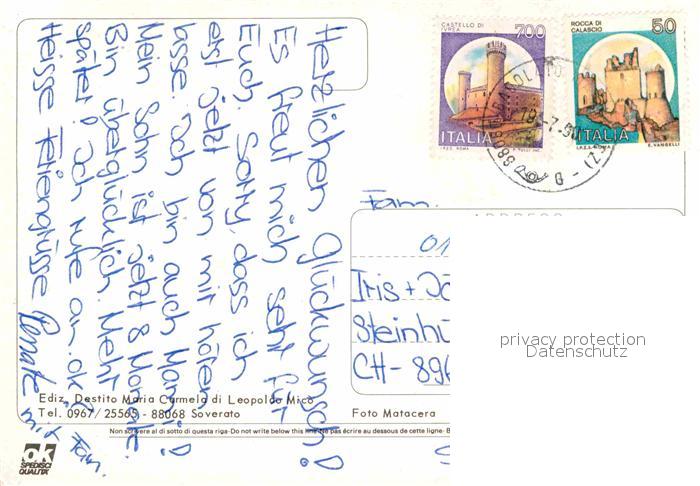 Herzlichen Glückwunsch!
Es freut mich sehr für
Euch. Sorry, dass ich
erst jetzt von mir hören
lasse. Ich bin auch Mami!
Mein Sohn ist jetzt 8 Monate.
Bin überglücklich. Mehr
später! Ich rufe an..ok?
Heisse Feriengrüsse Renate
mit Fam.
CASTELLO DI
IVREA
700
ITALIA
I.P.Z.S. ROMA
ROCCA DI
CALASCIO
50
ITALIA
I.P.Z.S. ROMA
E. VANGELLI
Fam.
Iris +
CH-896
privacy protection
Datenschutz
Ediz. Destito Maria Carmela di Leopoldo Micò
Tel. 0967/25565 - 88068 Soverato
Foto Matacera
Non scrivere al di sotto di questa riga-Do not write below this line-Ne pas écrire au dessous de cette ligne-
ok
SPEDISCI
QUALITA'